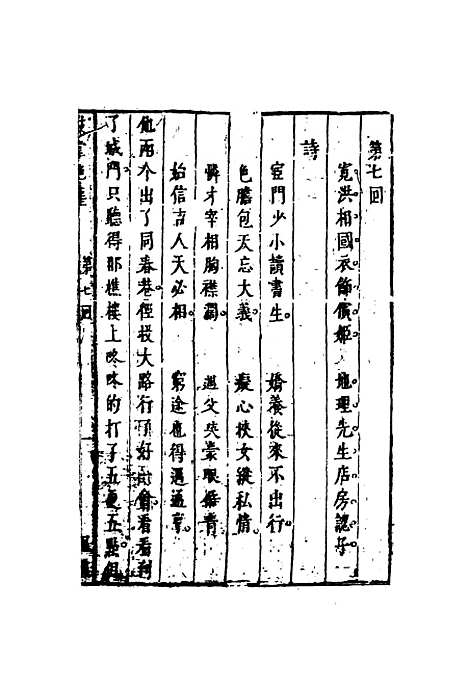 第七回
寬洪相國衣飾償姬 地理先生店房認子
詩
宦門少小讀書生。 嬌養從來不出行。
色膽包天忘大義。 癡心挾女縱私情。
憐才宰相胸襟濶。 遇父央蒙眼
始信吉人天必相。 窮途也得遇通亨。
他兩个出了同春巷。徑投大路行頂好討會看看到
了城門只聽得那樵樓上咚咚的打了五更五點但
第七回